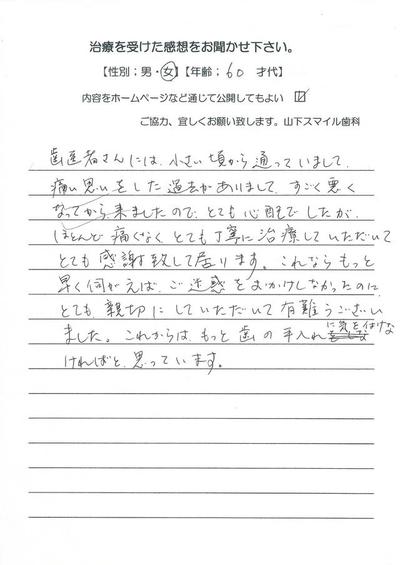 治療を受けた感想をお聞かせ下さい。
【性別：男・女】【年齢：60 才代】
内容をホームページなど通じて公開してもよい ☑
ご協力、宜しくお願い致します。山下スマイル歯科
歯医者さんには、小さい頃から通っていまして、
痛い思いをした過去がありまして、すごく悪く
なってから来ましたので、とても心配でしたが、
ほとんど痛くなく、とても丁寧に治療していただいて
とても感謝致して居ります。これならもっと
早く伺がえば、ご迷惑をおかけしなかったのに、
とても、親切にしていただいて有難うござい
ました。これからは、もっと歯の手入れに気を付けな
ければと、思っています。